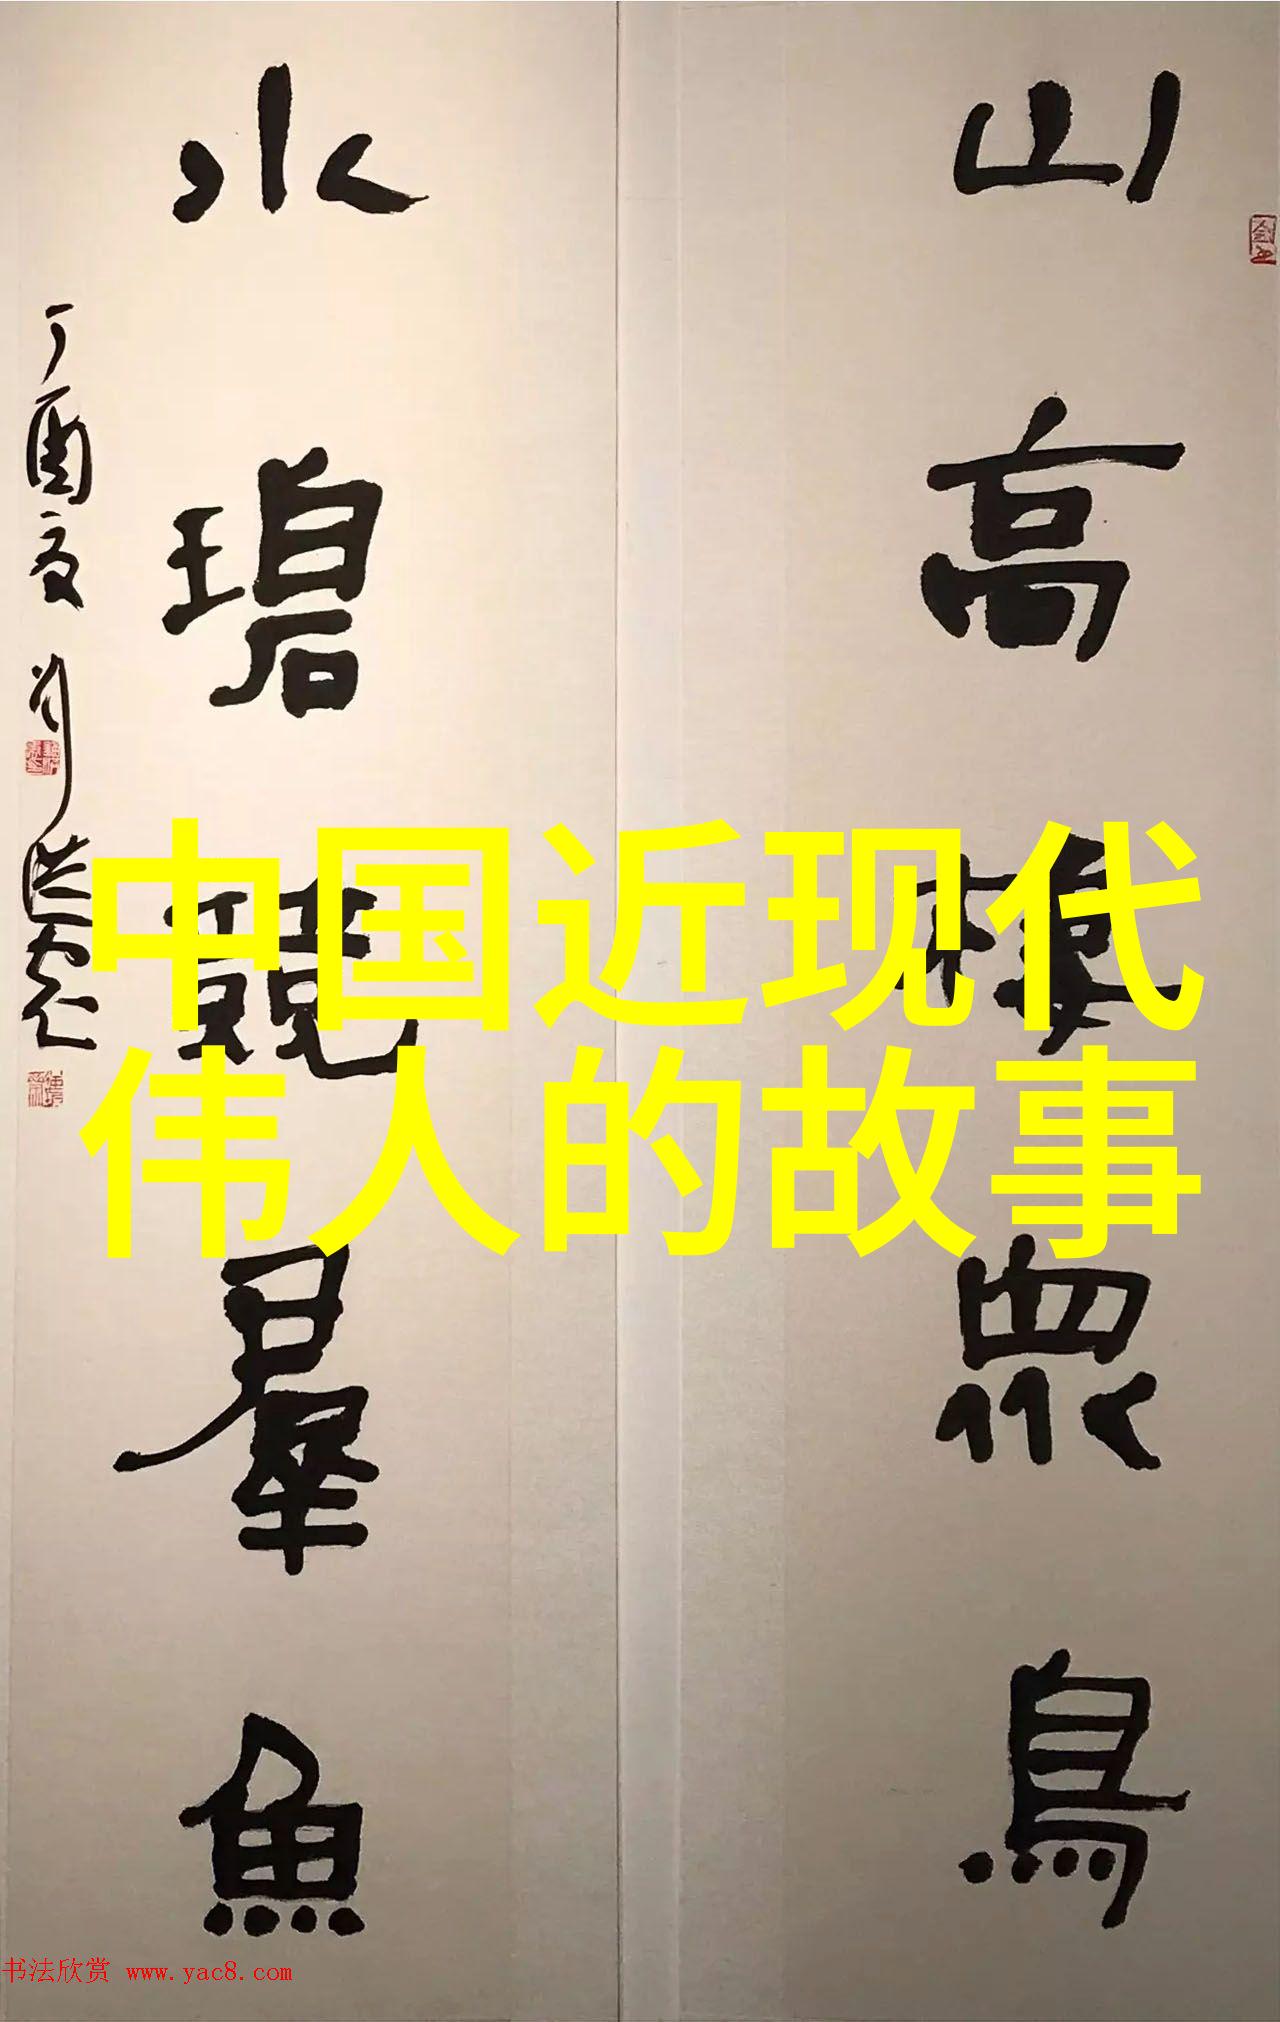 山高樓眾鳥
水碧競羣魚
丁酉夏 劉洪彪
中国近现代
伟人的故事
书法欣赏 www.yac8.com